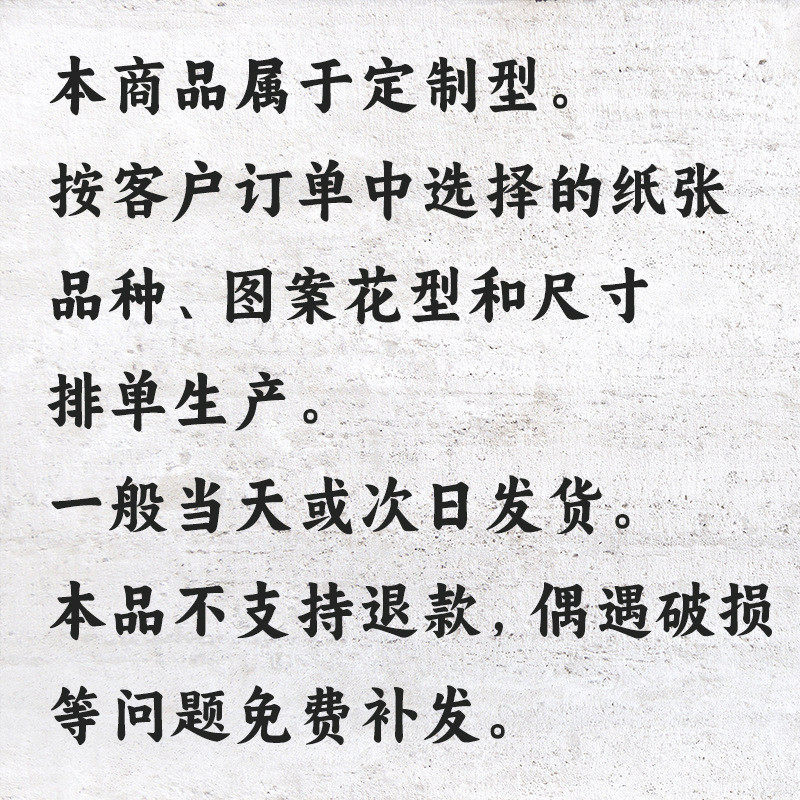 本商品属于定制型。
按客户订单中选择的纸张
品种、图案花型和尺寸
排单生产。
一般当天或次日发货。
本品不支持退款,偶遇破损
等问题免费补发。